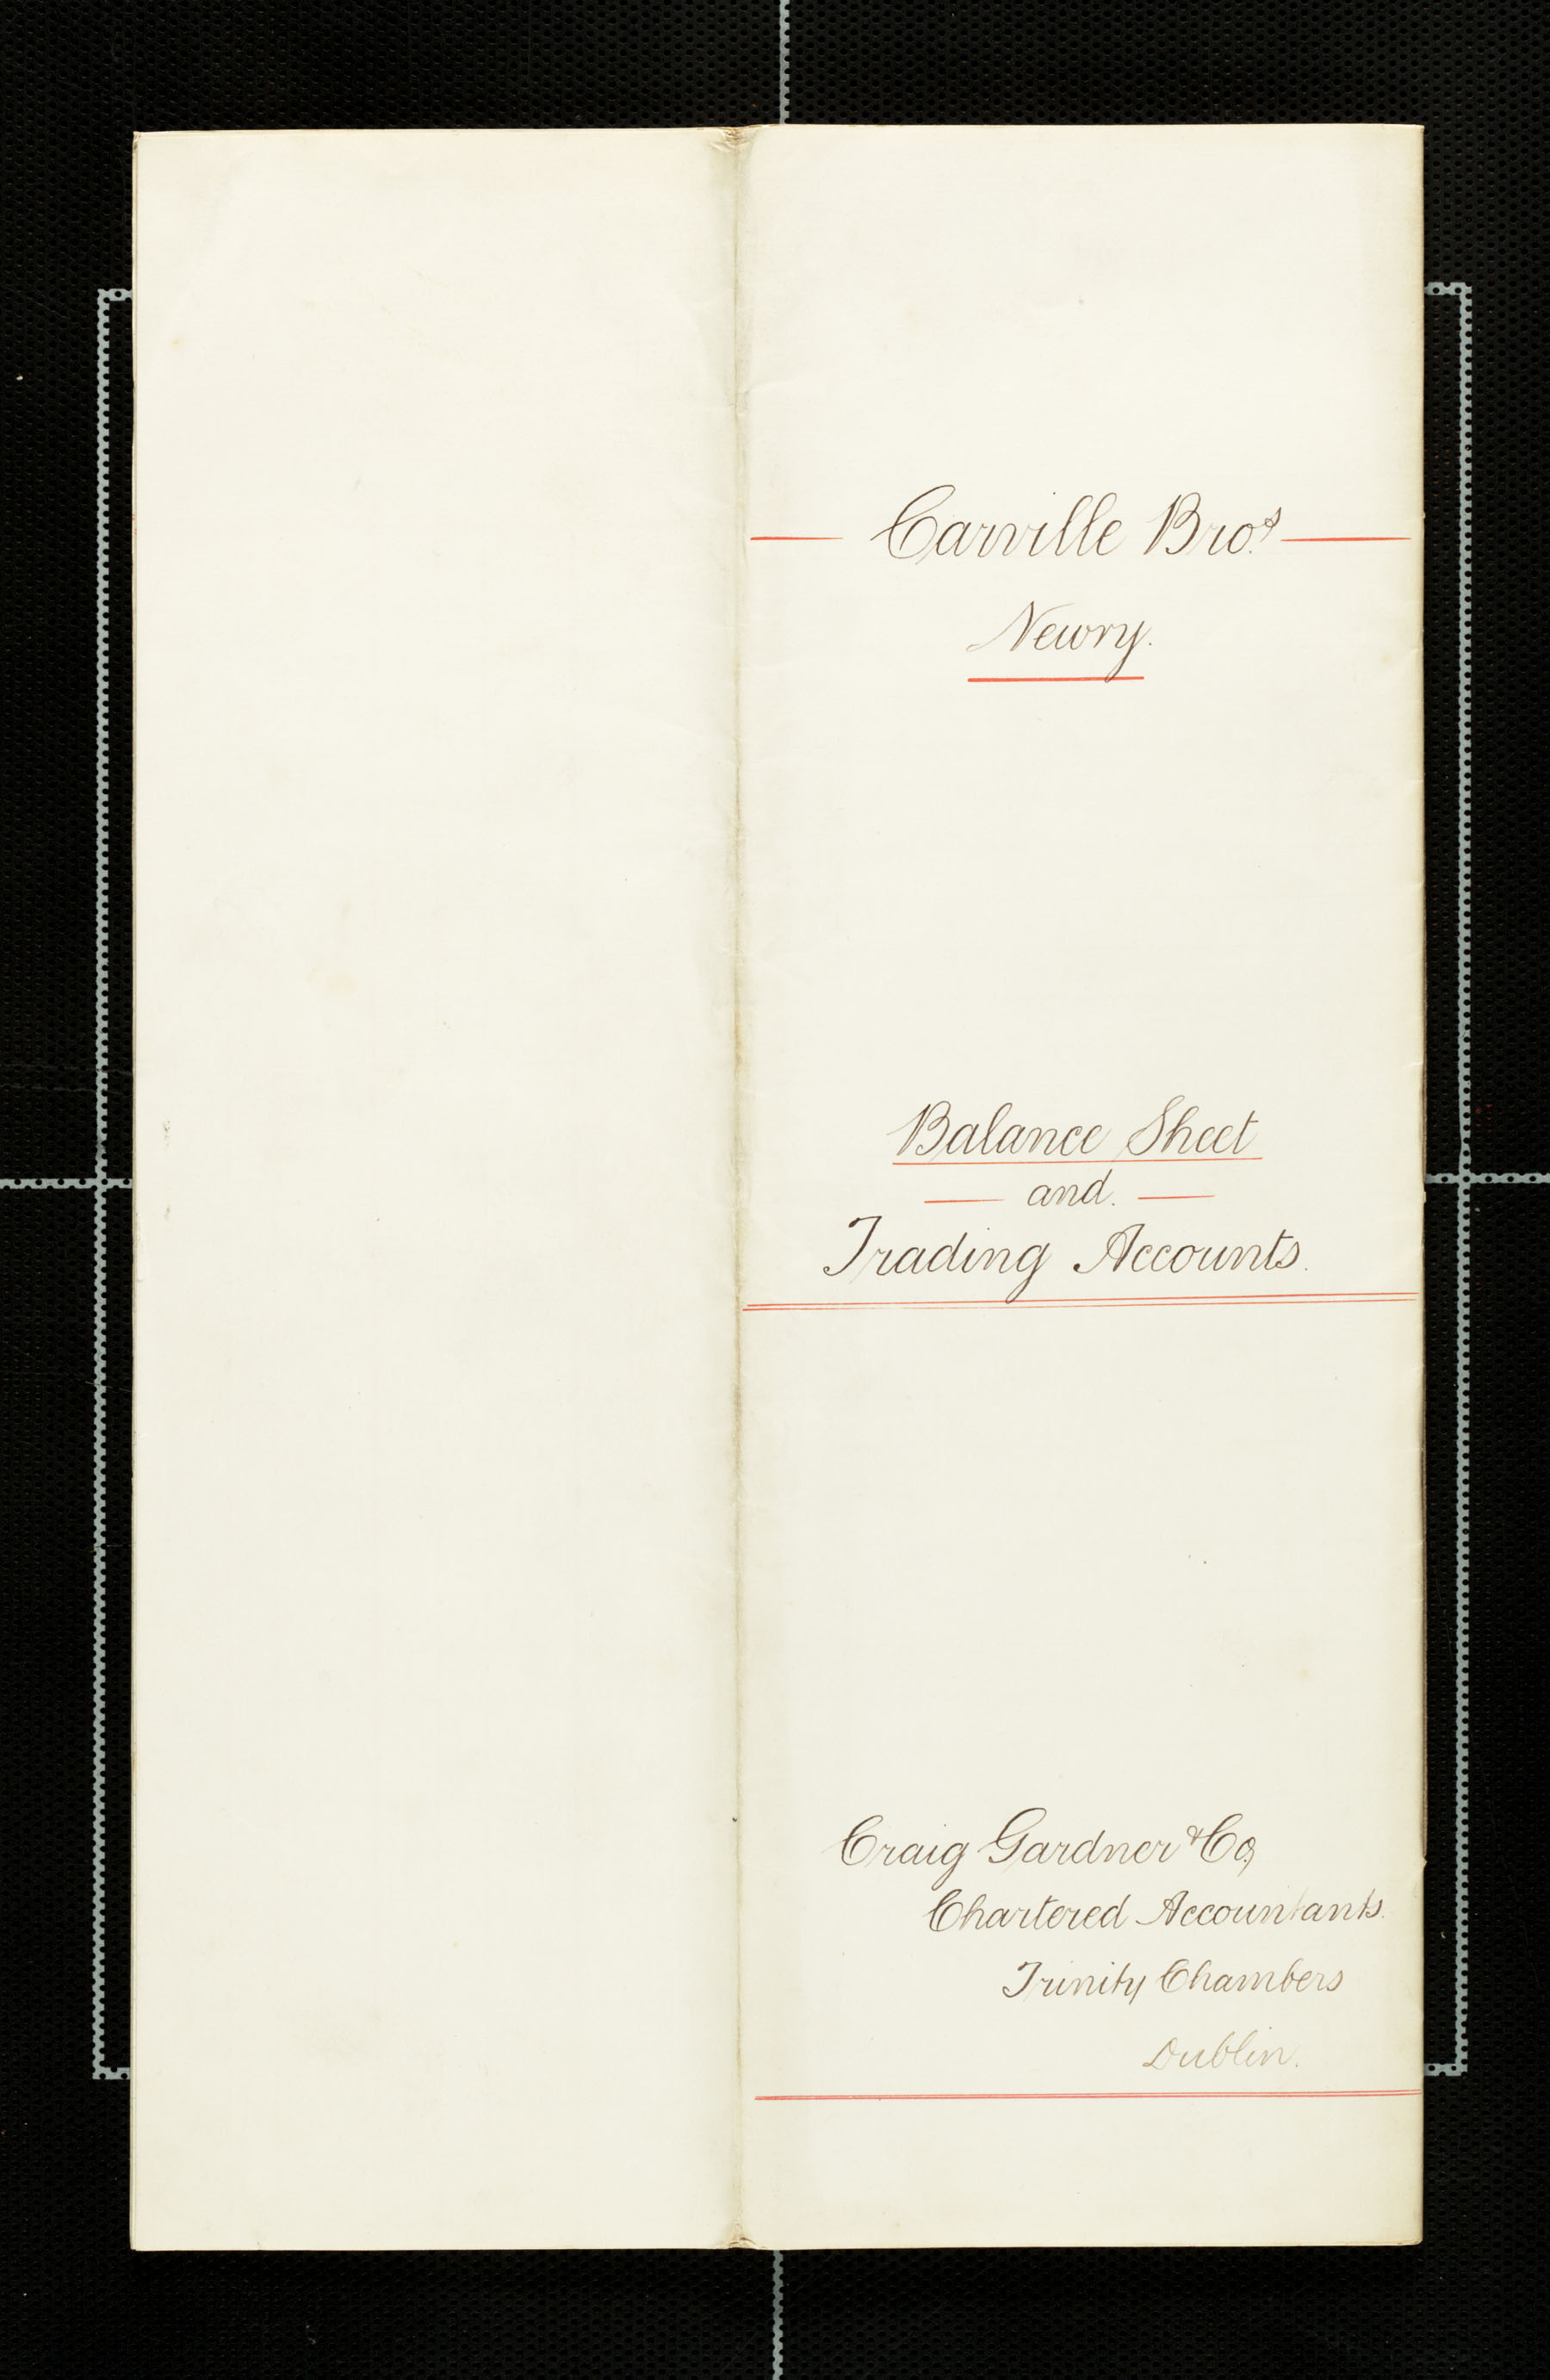 Carville Bros.
Newry.
Balance Sheet
and.
Trading Accounts.
Craig Gardner & Co,
Chartered Accountants.
Trinity Chambers
Dublin.